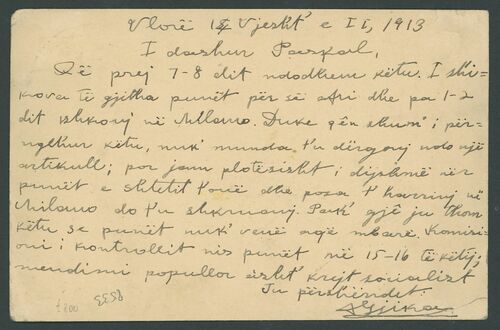 Vlorë 14 Vjesht' e II, 1913
I dashur Paskal,
Që prej 7-8 dit ndodhem këtu. I shi-
kova të gjitha punët për së afri dhe pa 1-2
dit shkonj në Milano. Duke qên shum' i për-
nguthur këtu, nuk' munda t'u dërgonj ndo një
artikull; por jam plotësisht i dijshmë për
punët e shtetit t'onë dhe posa t'harrinj në
Milano do t'u shkruanj. Pak' gjë ju thom
këtu se punët nuk' venë aqë mbarë. Komisi-
oni i kontrollit nis punët në 15-16 të këtij;
mendimi popullor është krejt socialist
Ju përshëndet.
Gjika
9533
£200